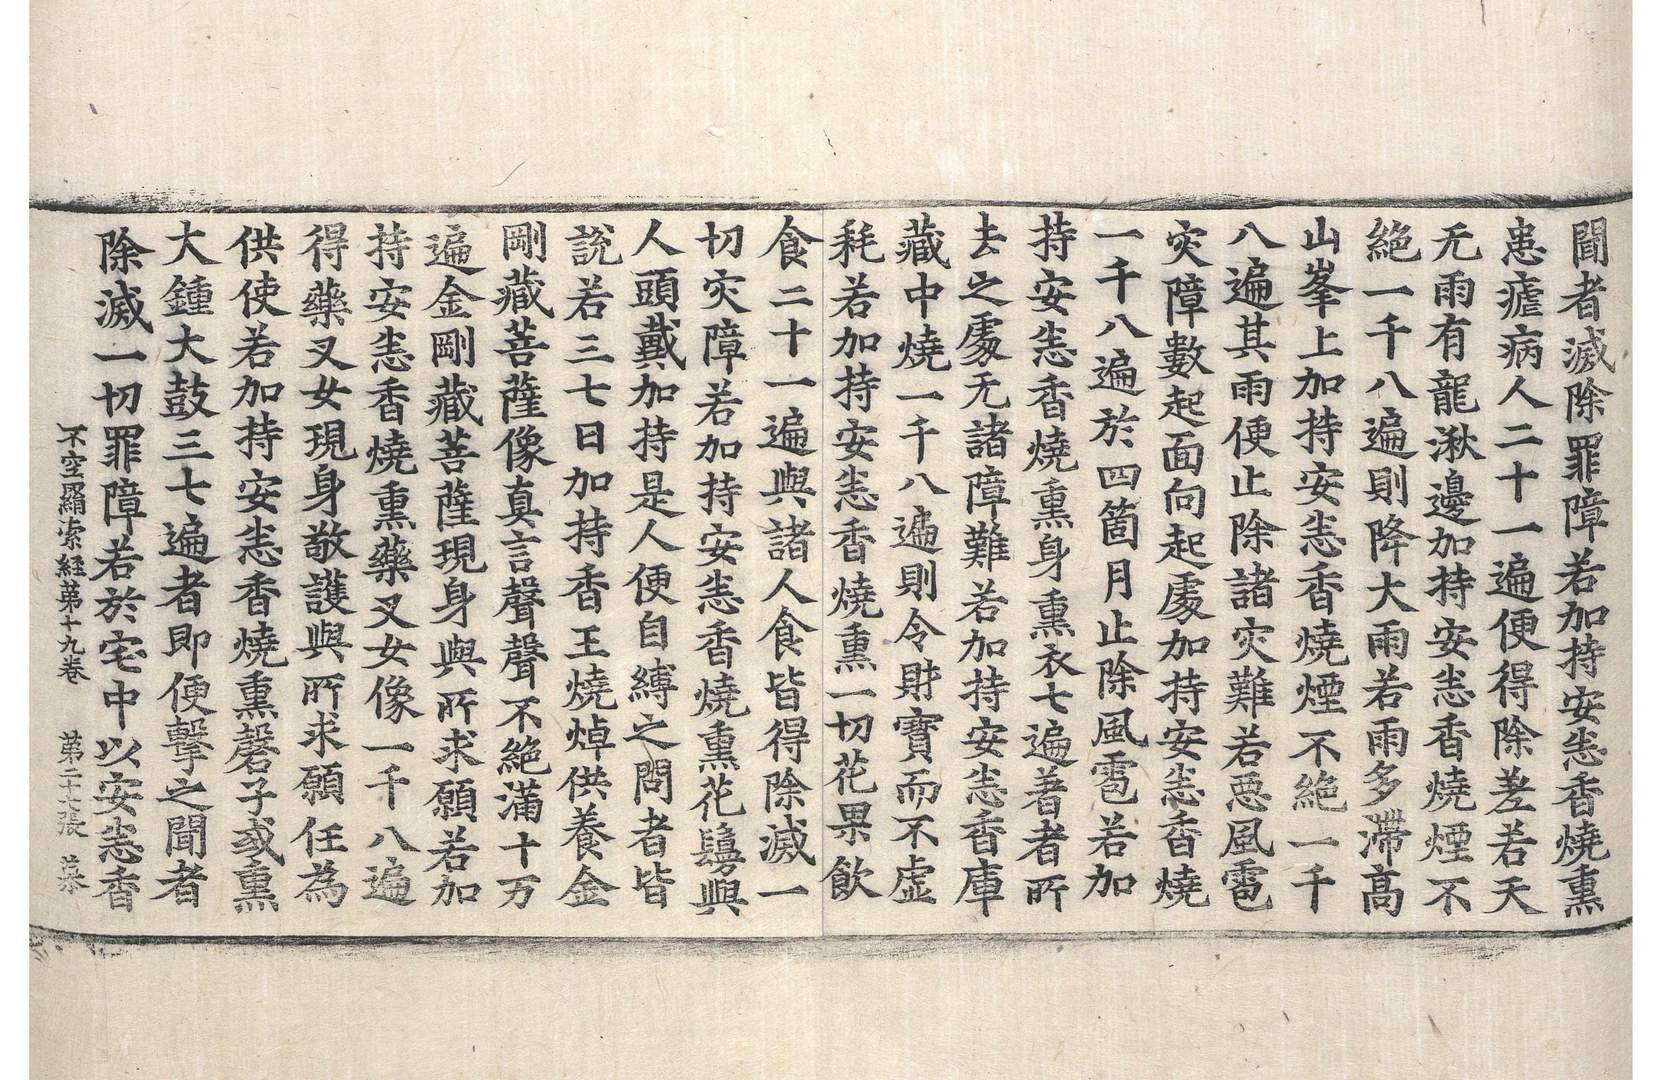 聞者滅除罪障若加持安悉香燒熏
患瘧病人二十一遍便得除差若天
无雨有龍湫邊加持安悉香燒煙不
絕一千八遍則降大雨若雨多滯高
山峯上加持安悉香燒煙不絕一千
八遍其雨便止除諸灾難若惡風雹
灾障數起面向起處加持安悉香燒
一千八遍於四箇月止除風雹若加
持安悉香燒熏身熏衣七遍著者所
去之處无諸障難若加持安悉香庫
藏中燒一千八遍則令財寶而不虛
耗若加持安悉香燒熏一切花果飲
食二十一遍與諸人食皆得除滅一
切灾障若加持安悉香燒熏花鬘與
人頭戴加持是人便自縛之問者皆
說若三七日加持香王燒焯供養金
剛藏菩薩像真言聲聲不絕滿十万
遍金剛藏菩薩現身與所求願若加
持安悉香燒熏藥叉女像一千八遍
得藥叉女現身敬護與所求願任為
供使若加持安悉香燒熏磬子或熏
大鍾大鼓三七遍者即便擊之聞者
除滅一切罪障若於宅中以安悉香
不空羂索經第十九卷　第二十六張　慕